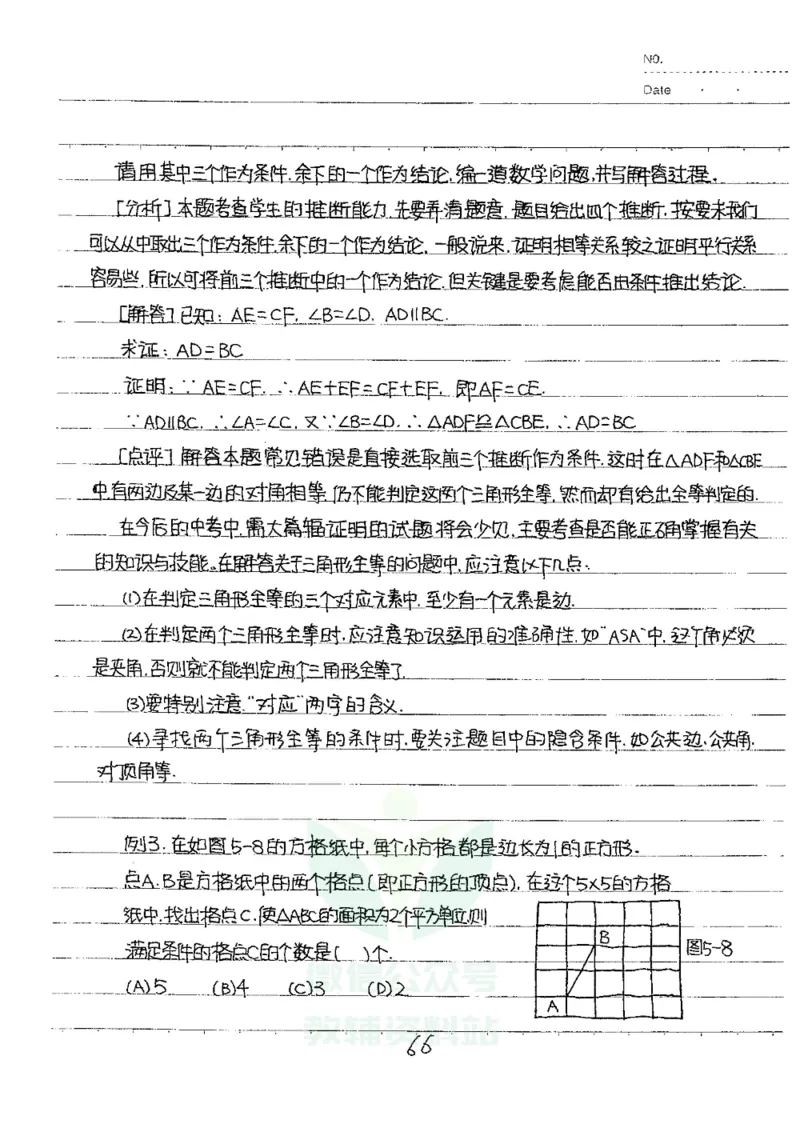 NO.
Date
请用其中三个作为条件,余下的一个作为结论,编一道数学问题,并写解答过程.
[分析]本题考查学生的推断能力,先要弄清题意,题目给出四个推断,按要求我们
可以从中取出三个作为条件,余下的一个作为结论,一般说来,证明相等关系较之证明平行关系
容易些,所以可将前三个推断中的一个作为结论,但关键是要考虑能否由条件推出结论.
[解答]已知:AE=CF,∠B=∠D,AD∥BC.
求证:AD=BC
证明:∵AE=CF,∴AE+EF=CF+EF,即AF=CE.
∵AD∥BC,∴∠A=∠C,又∵∠B=∠D,∴△ADF≌△CBE,∴AD=BC
[点评]解答本题常见错误是直接选取前三个推断作为条件,这时在△ADF和△CBE
中有两边及某一边的对角相等,仍不能判定这两个三角形全等,然而却有给出全等判定的.
在今后的中考中,需大篇辐证明的试题将会少见,主要考查是否能正确掌握有关
的知识与技能。在解答关于三角形全等的问题中,应注意以下几点:
(1)在判定三角形全等的三个对应元素中,至少有一个元素是边.
(2)在判定两个三角形全等时,应注意知识运用的准确性,如"ASA"中,这个角必须
是夹角,否则就不能判定两个三角形全等了.
(3)要特别注意"对应"两字的含义.
(4)寻找两个三角形全等的条件时,要关注题目中的隐含条件,如公共边,公共角,
对顶角等.
例3.在如图5-8的方格纸中,每个小方格都是边长为1的正方形.
点A、B是方格纸中的两个格点(即正方形的顶点),在这个5×5的方格
纸中,找出格点C,使△ABC的面积为2个平方单位,则
满足条件的格点C的个数是( )个.
(A)5 (B)4 (C)3 (D)2
B
A
图5-8
微信公众号
教辅资料站
66